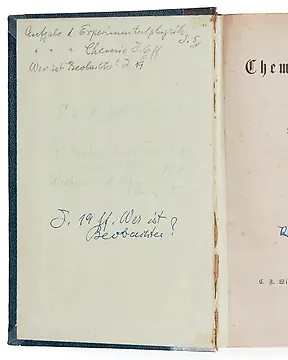 Aufgabe d. Experimentalphysik S. 5
" " " Chemie S. 6 ff
Wer ist Beobachter? S. 19
S. 19 ff. Wer ist
Beobachter?
Chem
R
C. F. Wi